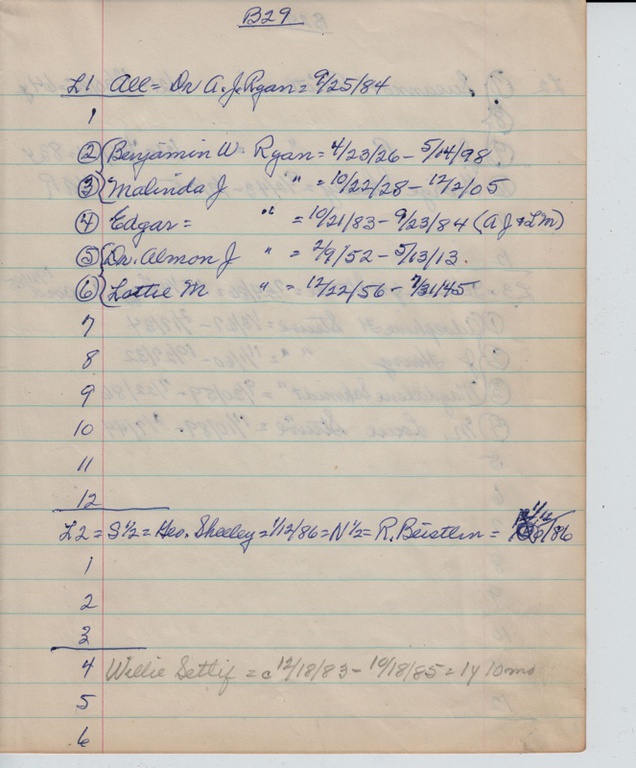 B29
L1 All = Dr A. J. Ryan = 9/25/84
1
2 Benjamin W. Ryan = 4/23/26 - 5/14/98
3 Malinda J " = 10/22/28 - 12/2/05
4 Edgar = " = 10/21/83 - 9/23/84 (A J & L M)
5 Dr. Almon J " = 2/9/52 - 5/13/13.
6 Lottie M " = 12/22/56 - 7/31/45
7
8
9
10
11
12
L2 = S 1/2 = Geo. Sheeley = 1/12/86 = N 1/2 = R. Beistlem =
1
2
3
4 Willie Settlif = c 12/18/83 - 10/18/85 = 1y 10mo
5
6